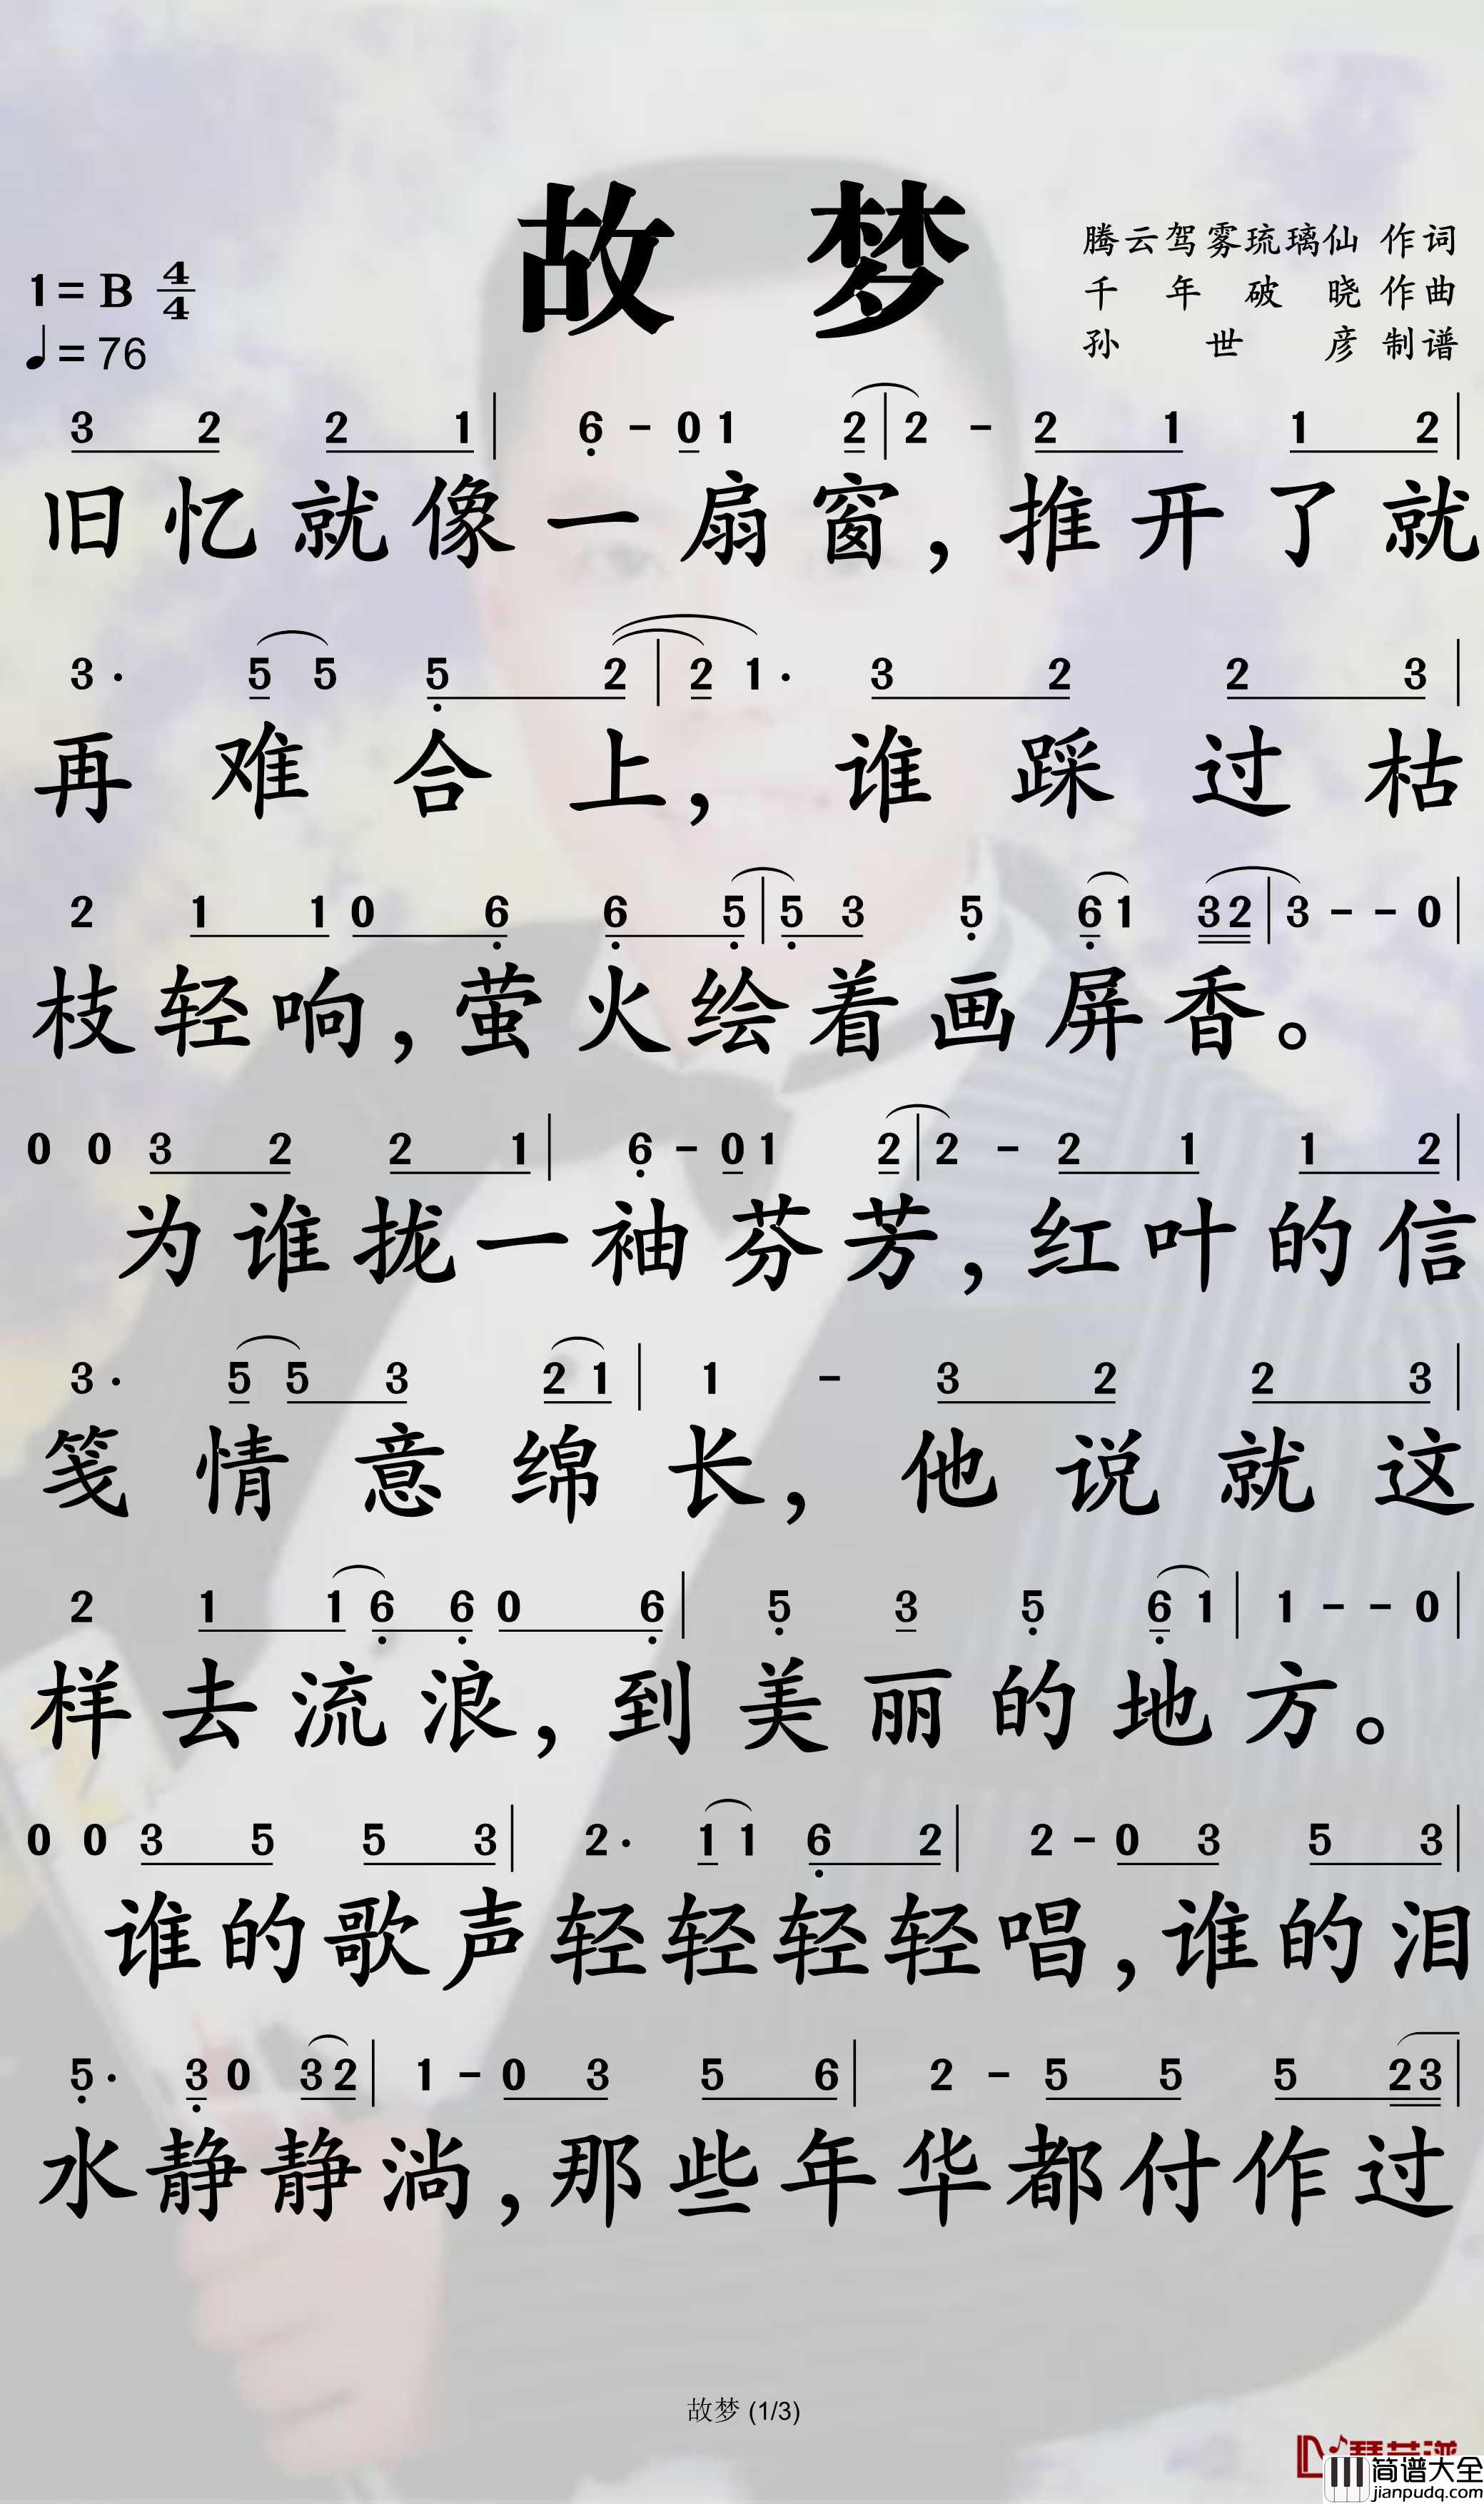 故 梦
腾云驾雾琉璃仙 作词
千年破晓 作曲
孙世彦 制谱
1=B 4/4
♩=76
3 2 2 1 | 6 - 0 1 2 | 2 - 2 1 1 2 |
旧忆就像一扇窗，推开了就
3· 5 5 5 2 | 2 1· 3 2 2 3 |
再难合上，谁踩过枯
2 1 1 0 6 6 5 | 5 3 5 6 1 3 2 | 3 - - 0 |
枝轻响，萤火绘着画屏香。
0 0 3 2 2 1 | 6 - 0 1 2 | 2 - 2 1 1 2 |
为谁拢一袖芬芳，红叶的信
3· 5 5 3 2 1 | 1 - 3 2 2 3 |
笺情意绵长，他说就这
2 1 1 6 6 0 6 | 5 3 5 6 1 | 1 - - 0 |
样去流浪，到美丽的地方。
0 0 3 5 5 3 | 2· 1 1 6 2 | 2 - 0 3 5 3 |
谁的歌声轻轻轻轻唱，谁的泪
5· 3 0 3 2 | 1 - 0 3 5 6 | 2 - 5 5 5 2 3 |
水静静淌，那些年华都付作过
故梦 (1/3)
简谱大全
jianpudq.com